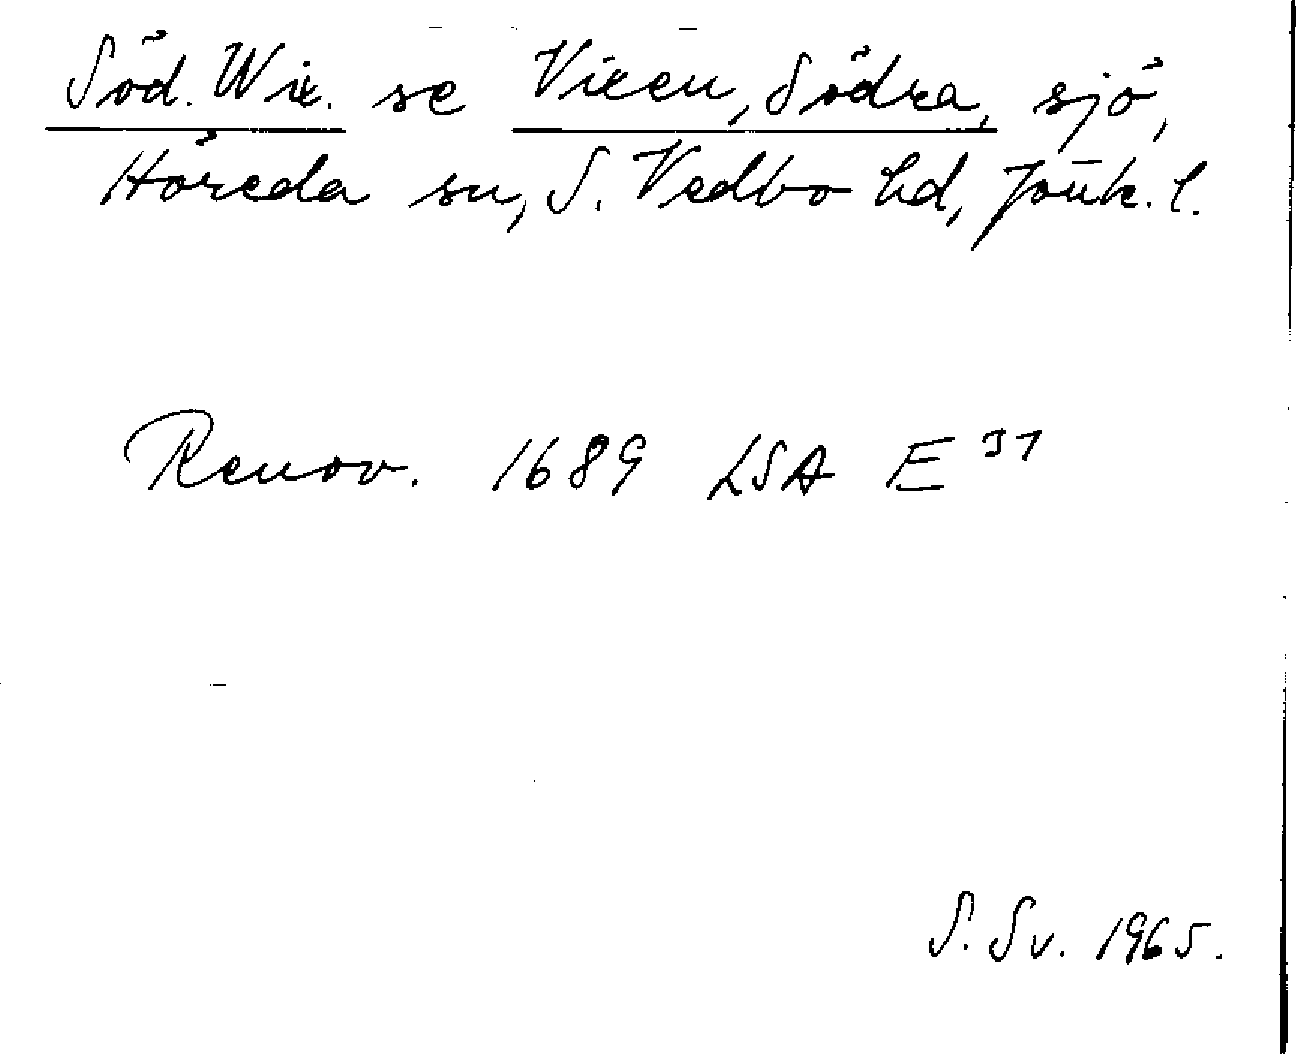 Söd. Wix. se Vixen, Södra, sjö,
Höreda sn, S. Vedbo hd, Jönk. l.
Renov. 1689 LSA E 31
S. Sv. 1965.